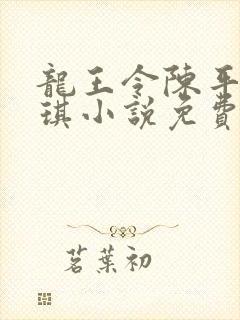 龍王令陳平
琪小說免費
茗葉初